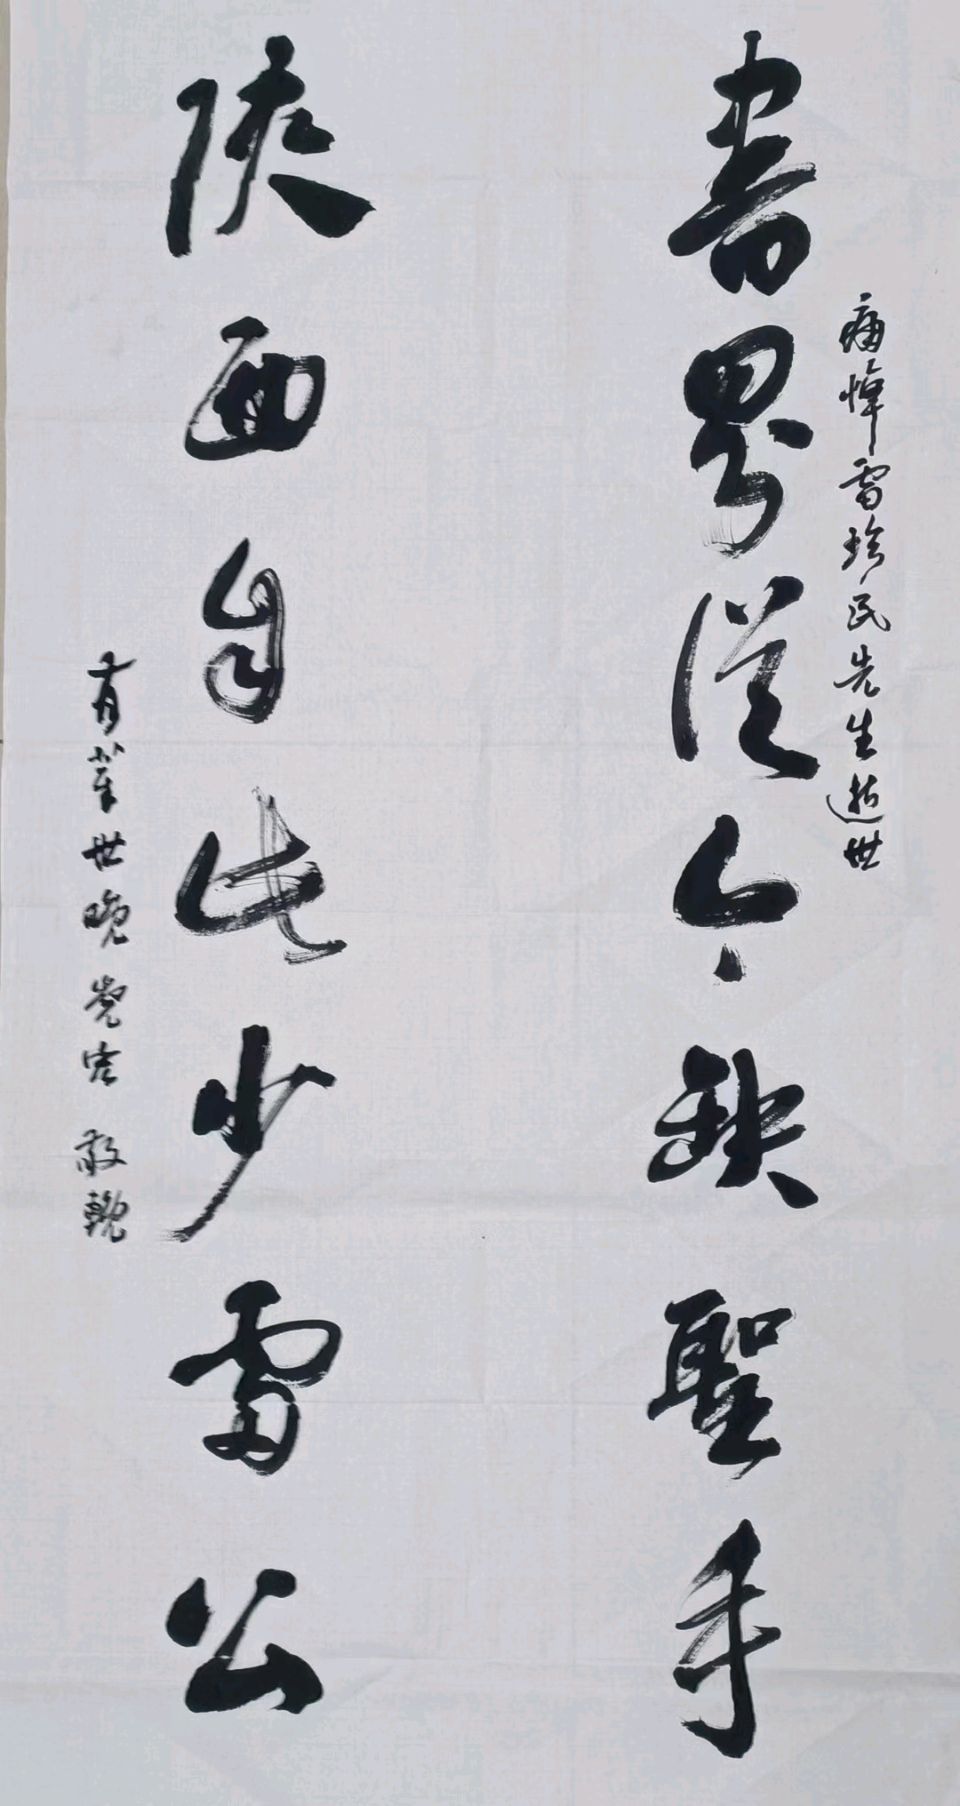 痛悼雷珍民先生逝世
書界從今缺聖手
陝西自此少雷公
有華世晚党 敬輓